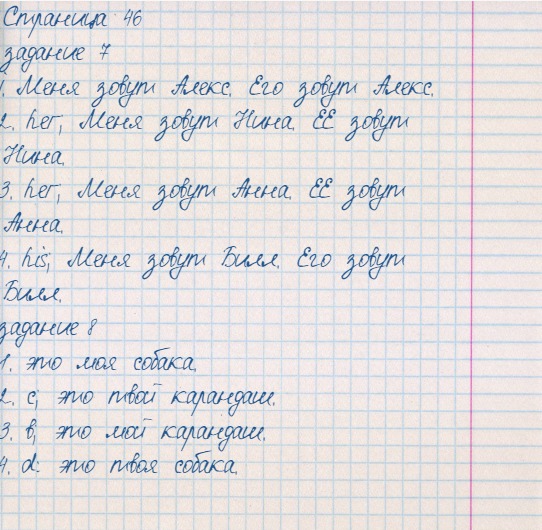 Страница 46
задание 7
1. Меня зовут Алекс. Его зовут Алекс.
2. her; Меня зовут Нина. ЕЁ зовут
Нина.
3. her; Меня зовут Анна. ЕЁ зовут
Анна.
4. his; Меня зовут Билл. Его зовут
Билл.
задание 8
1. это моя собака.
2. c; это твой карандаш.
3. b; это мой карандаш.
4. d: это твоя собака.